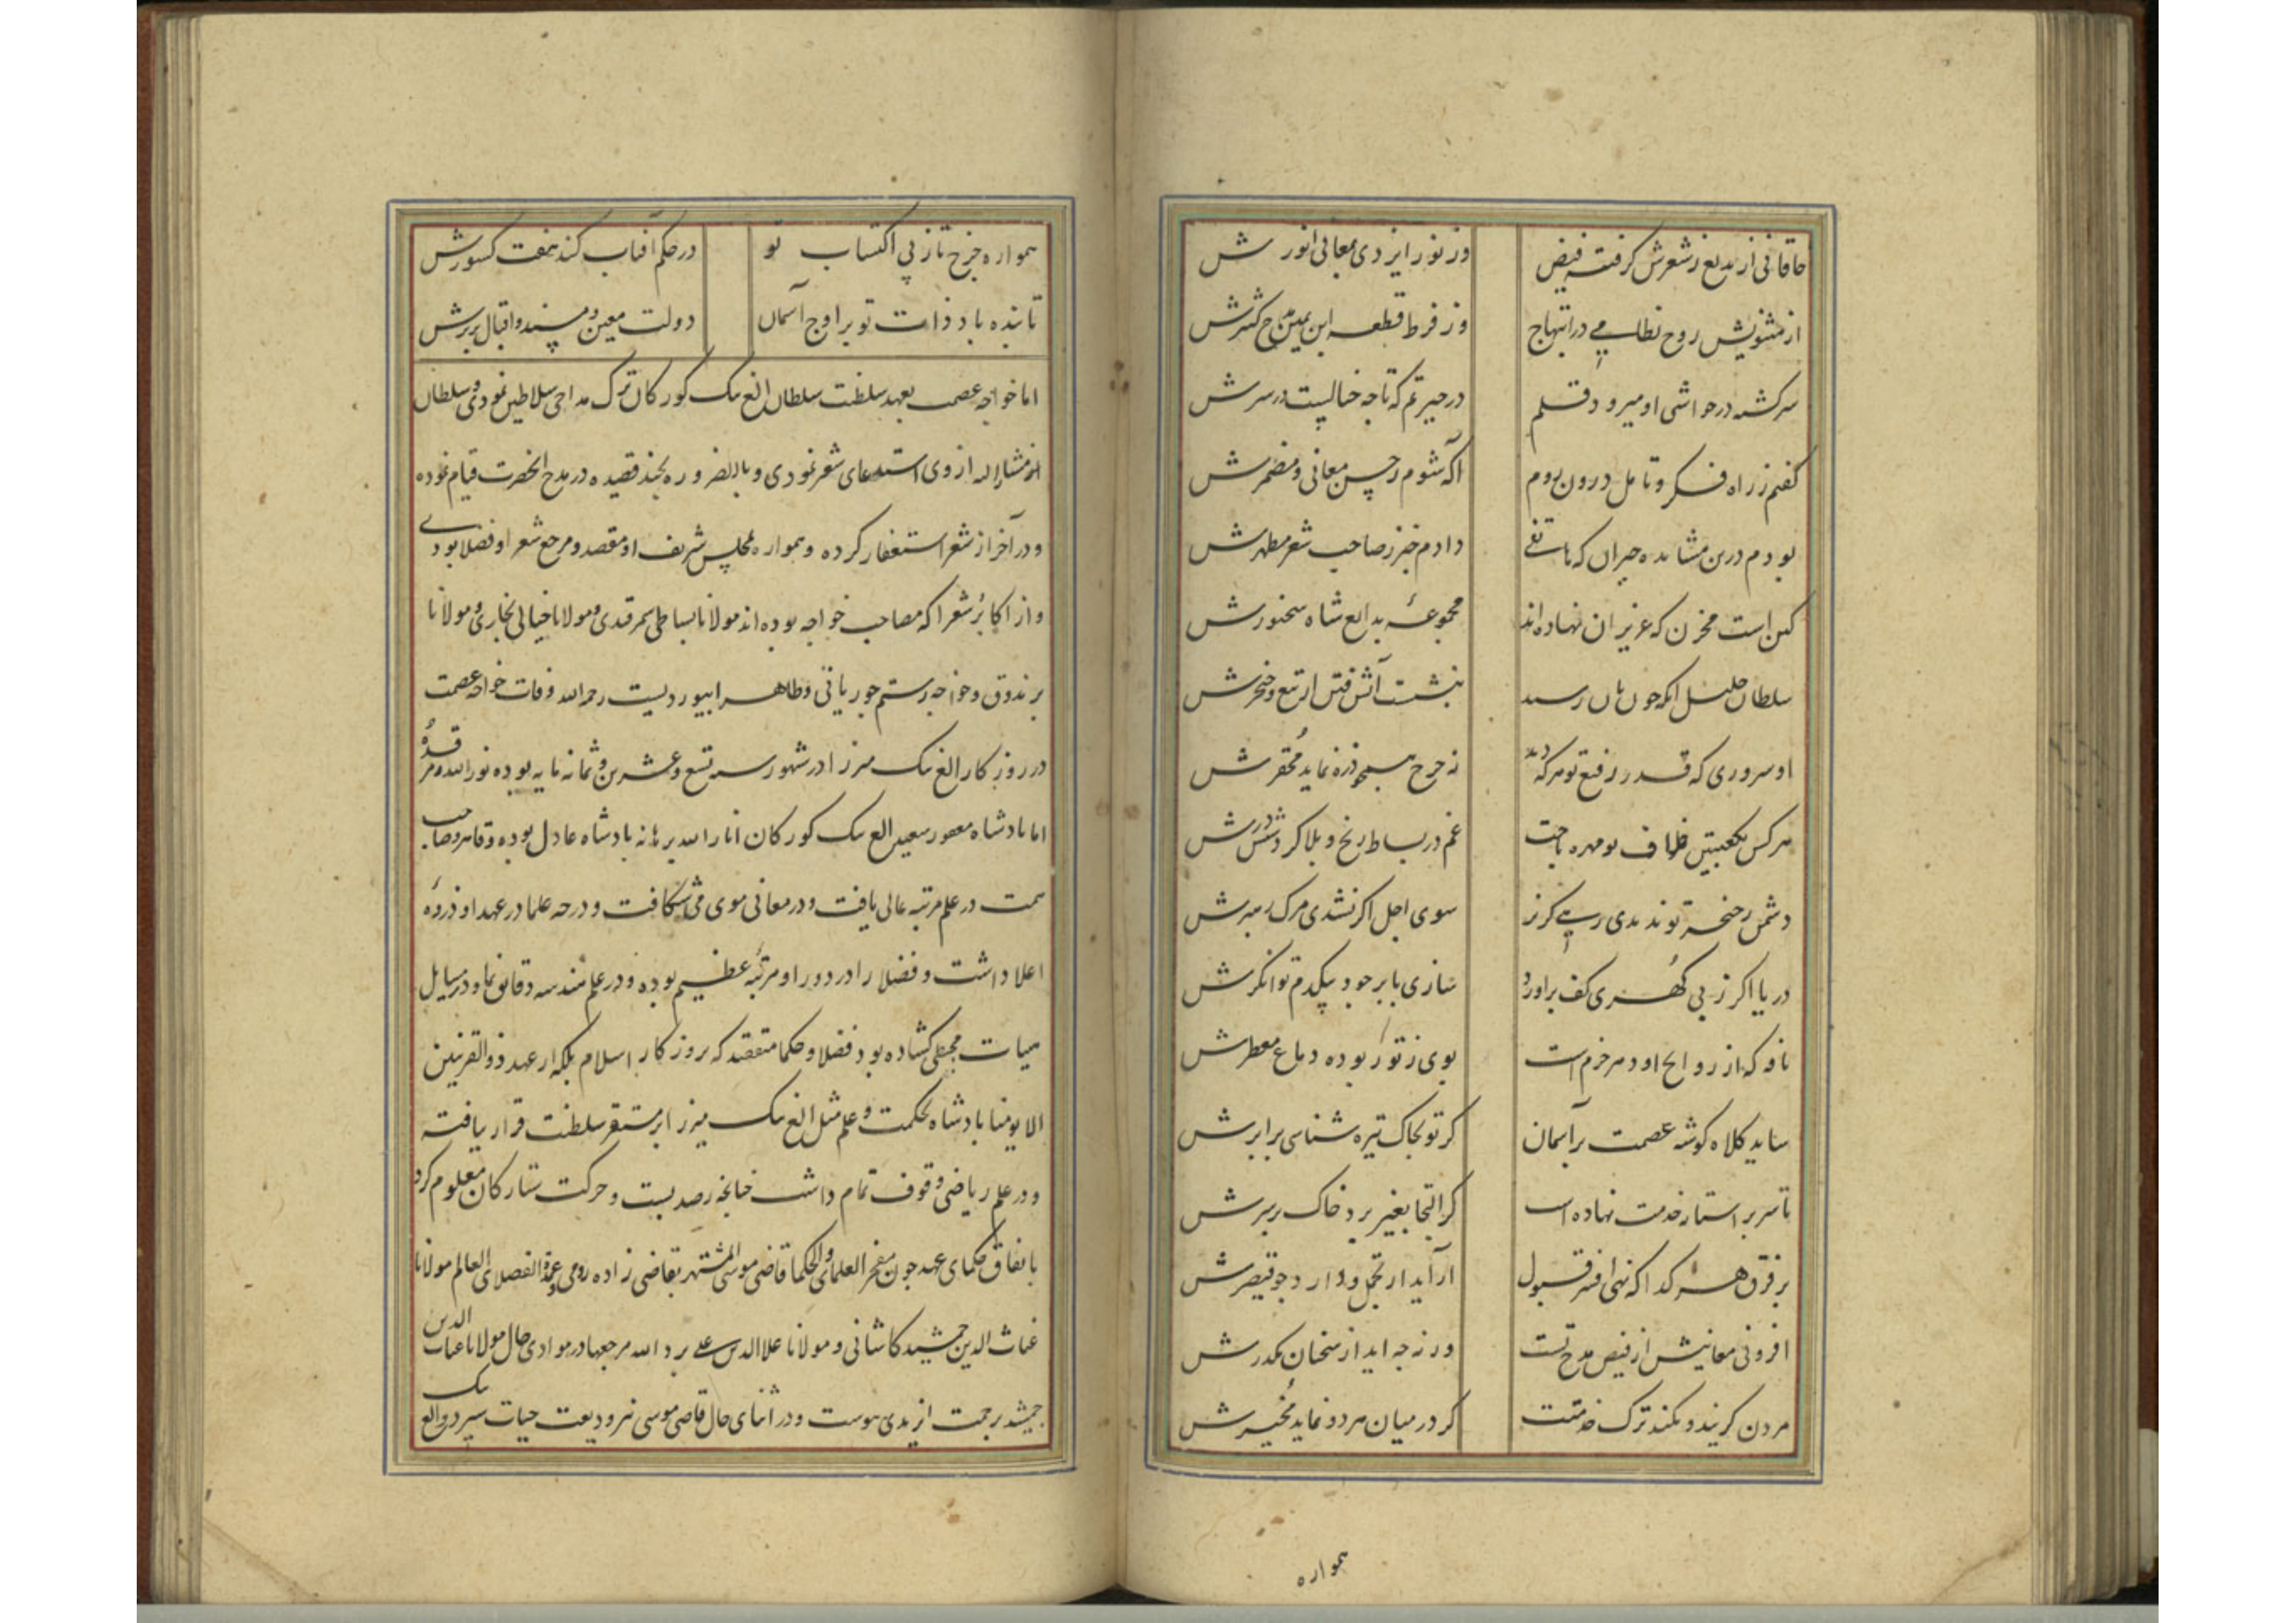 خاقانی از بدیع ز شعرش گرفته فیض وز نور ایزدی بمعانی انورش
از مثنویش روح نظامی در ابتهاج وز فرط قطعه ابن یمین مدح کسترش
سرگشته در حواشی او میرود قلم در حیرتم که تا چه خیالیست در سرش
گفتم ز راه فکر و تامل درون روم آگه شوم ز حسن معانی و مضمرش
بودم درین مشاهده حیران که هاتفی دادم خبر ز صاحب شعر مطهرش
کین است مخزن که عزیزان نهاده‌اند مجموعهٔ بدایع شاه سخنورش
سلطان خلیل آنکه چون رسد بنشست آتش فتن از تیغ و خنجرش
او سروری که قدر رفیع تو هر که دید نه چرخ همچو ذره نماید محقرش
هر کس بکعبتین خلاف تو مهره باخت غم در بساط رنج و بلا کرد ششدرش
دشمن ز خنجر تو ندیدی رهی گریز سوی اجل اگر نشدی مرگ رهبرش
دریا اگر ز بی گهری کف برآورد سازی بابر جود بیکدم توانگرش
نافه که از روایح او دهر خرم است بوی ز تو ربوده دماغ معطرش
ساید کلاه گوشه عصمت بر آسمان گر تو بخاک تیره شناسی برابرش
تا سر بر استان خدمت نهاده است گر التجا بغیر برد خاک بر سرش
بر فرق هر گدا که نهی افسر قبول ار آید از تجمل و دارد چو قیصرش
افزونی معانیش از فیض مدح تست ور نه چه آید از سخنان مکدرش
مردن گزیند و نکند ترک خدمتت گر در میان هر دو نماید مخیرش
همواره
همواره چرخ تاز پی اکتساب تو در حکم آفتاب کند هفت کشورش
تابنده باد ذات تو بر اوج آسمان دولت معین و مسند و اقبال بر برش
اما خواجه عصمت بعهد سلطنت سلطان الغ بیک کورکان ترک مداحی سلاطین نمودی و سلطان
مشارالیه از وی استدعای شعر نمودی و بالضروره بچند قصیده در مدح انحضرت قیام نموده
و در آخر از شعر استغفار کرده و همواره مجلس شریف او مقصد و مرجع شعرا و فضلا بودی
و از اکابر شعرا که مصاحب خواجه بوده‌اند مولانا بساطی سمرقندی و مولانا خیالی بخاری و مولانا
برندوق و خواجه رستم جوریانی و طاهر ابیوردیست رحمه الله وفات خواجه عصمت
در روزکار الغ بیک میرزا در شهور سنه تسع و عشرین و ثمانمایه بوده نور الله مرقده
اما پادشاه مغفور سعید الغ بیک کورکان انار الله برهانه پادشاه عادل بوده و قاهر و صاحب
همت در علم مرتبه عالی یافت و در معانی موی می‌شکافت و درجه علما در عهد او ذروهٔ
اعلا داشت و فضلا را در دور او مرتبه عظیم بوده و در علم هندسه دقایق نما و در مسایل
هیات مجسطی کشاده بود فضلا و حکما متفقند که بروزکار اسلام بلکه از عهد ذوالقرنین
الا یومنا پادشاه بحکمت و علم مثل الغ بیک میرزا بر مستقر سلطنت قرار نیافته
و در علم ریاضی وقوف تمام داشت چنانچه رصد بست و حرکت ستارکان معلوم کرد
باتفاق حکمای عهد چون مفخر العلما و الحکما قاضی موسی المشتهر بقاضی زاده رومی و الفضلای العالم مولانا
غیاث الدین جمشید کاشانی و مولانا علا الدین علی برد الله مرجعها در موادی حال مولانا غیاث الدین
جمشید برحمت ایزدی پیوست و در اثنای حال قاضی موسی نیز ودیعت حیات سپرد و الغ بیک